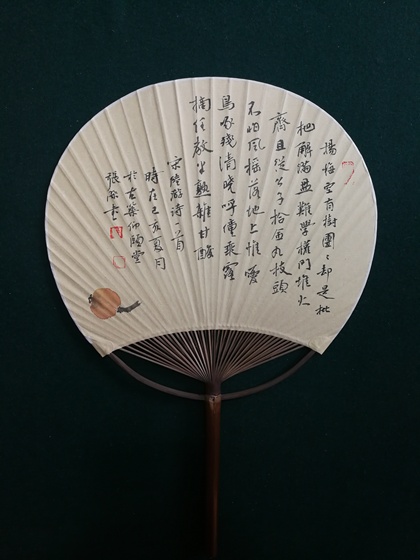 楊梅空有樹團〻却是枇
杷解滿盤難學權門堆火
齊且從公子拾金丸枝頭
不怕風搖落地上惟憂
鳥啄殘清曉呼僮乘露
摘任教半熟雜甘酸
宋陸游詩一首
時在己亥夏月
於古華仰陶堂
張